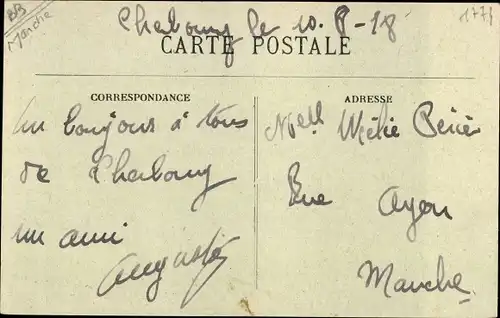 BB
Manche
1771
Cherbourg le 10-8-18
CARTE POSTALE
CORRESPONDANCE
un bonjour à tous
de Cherbourg
un ami
Auguste
ADRESSE
Melle
Rue
Manche